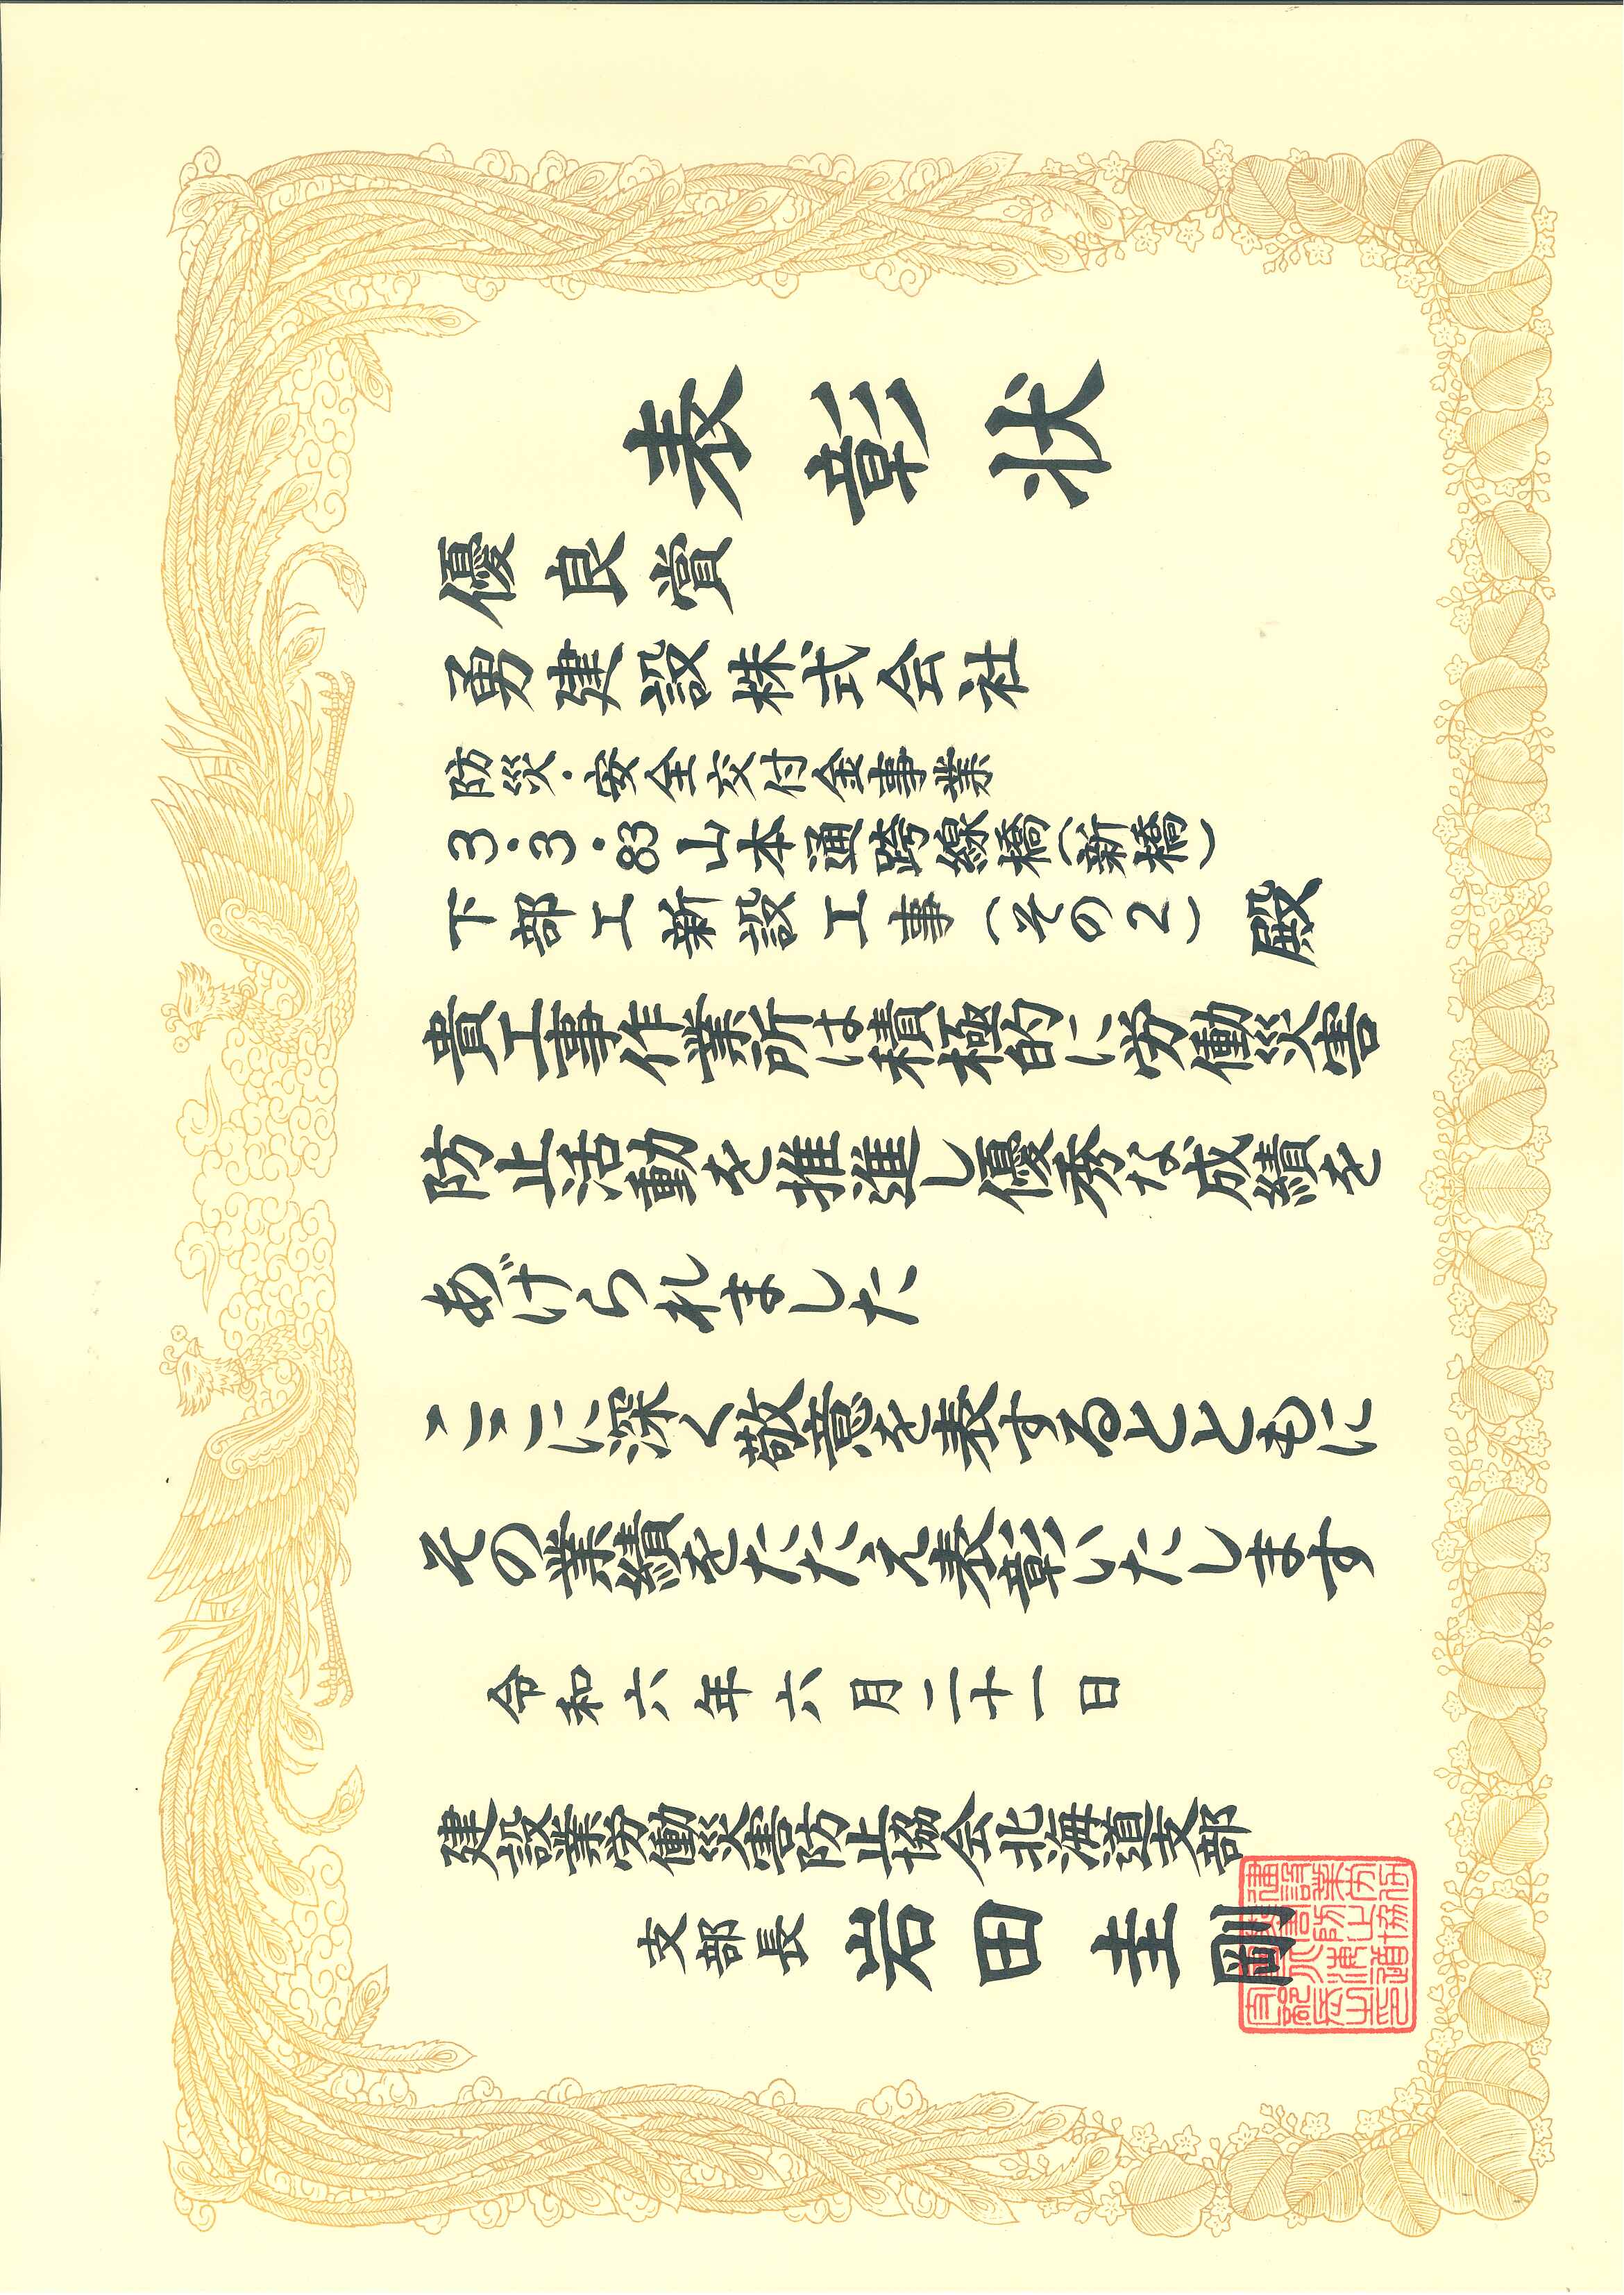 表彰状
優良賞
勇建設株式会社
防災・安全交付金事業
3・3・83山本通跨線橋(新橋)
下部工新設工事(その2) 殿
貴工事作業所は積極的に労働災害
防止活動を推進し優秀な成績を
あげられました
ここに深く敬意を表するとともに
その業績をたたえ表彰いたします
令和六年六月二十一日
建設業労働災害防止協会北海道支部
支部長 岩田圭剛